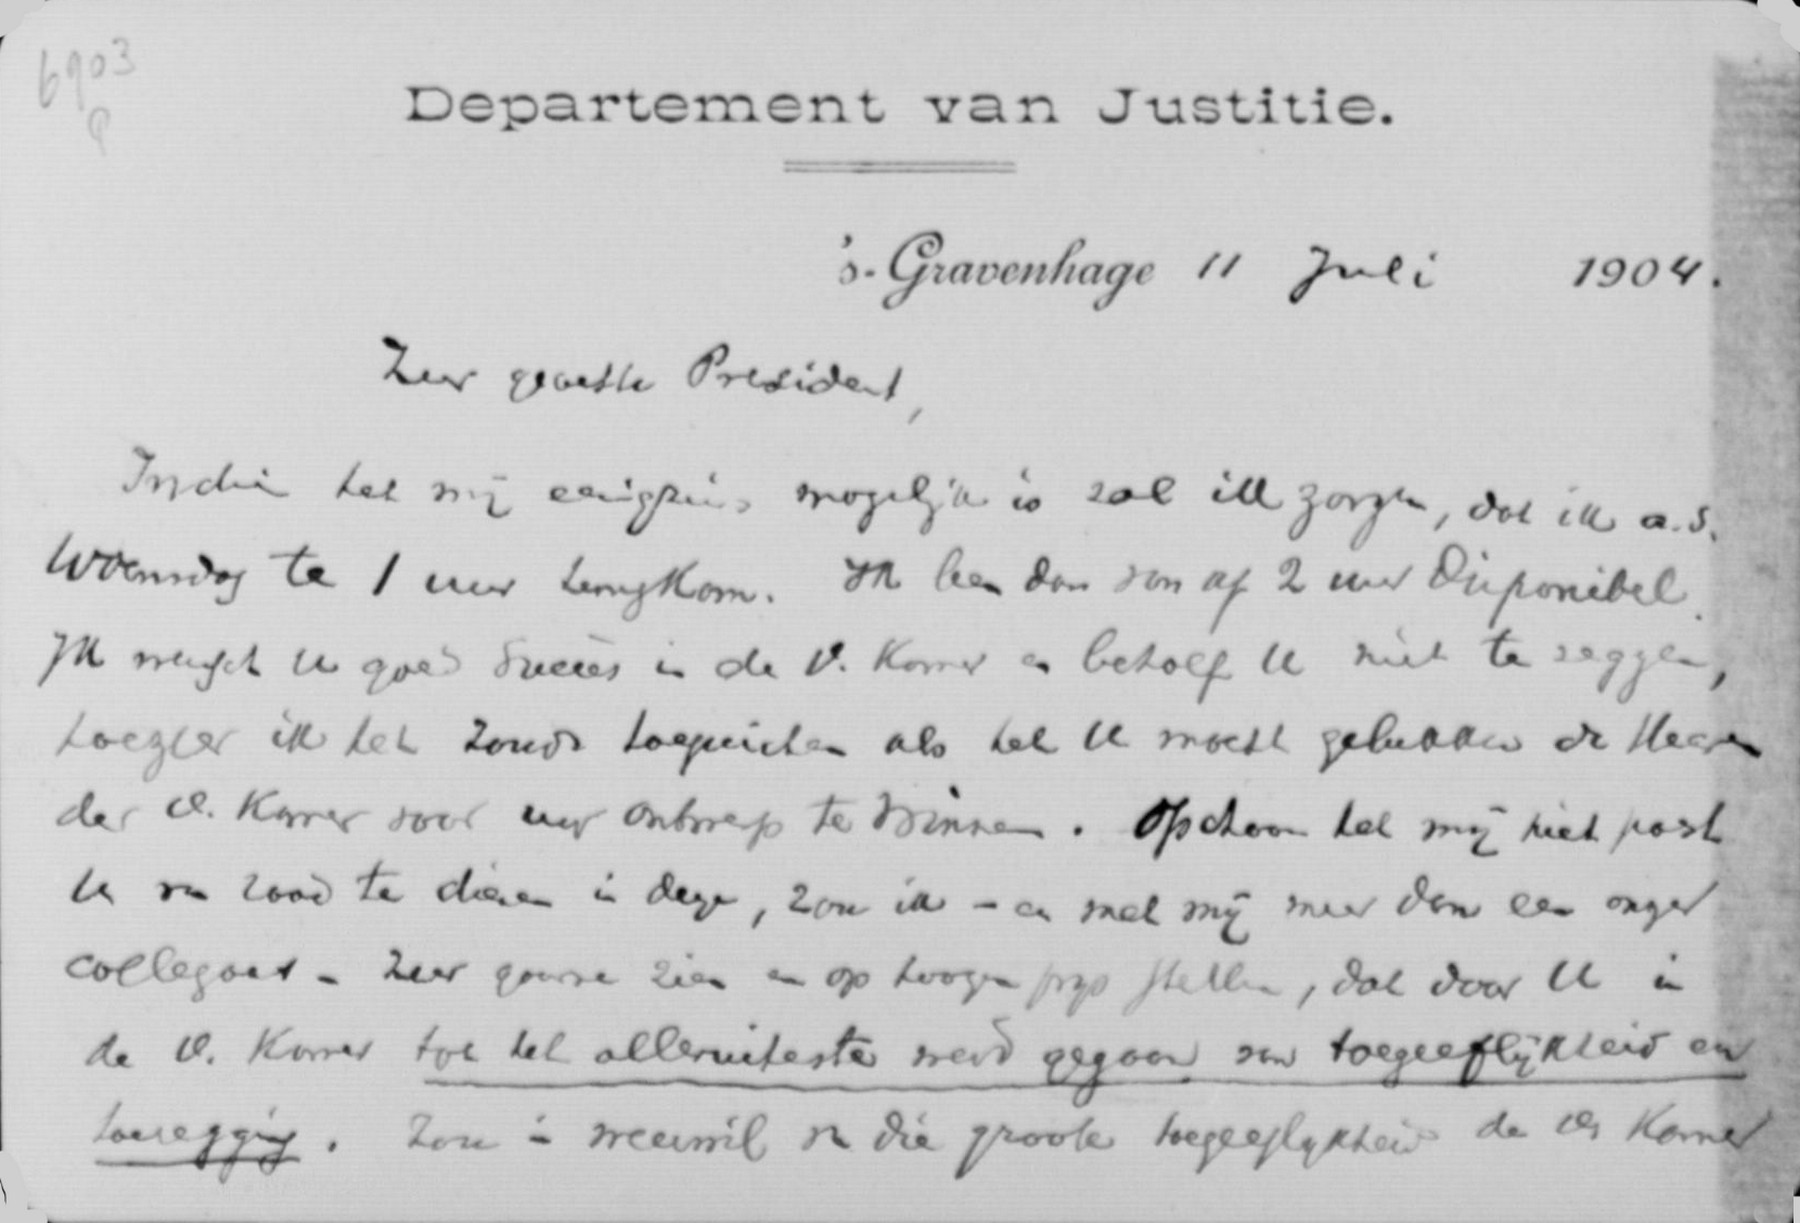 6903
Departement van Justitie.
's-Gravenhage 11 Juli 1904.
Zeer geachte President,
Indien het mij eenigzins mogelijk is zal ik zorgen, dat ik a.s.
Woensdag te 1 uur terugkom. Ik ben dan van af 2 uur disponibel.
Ik wensch U goed succes in de V. Kamer en behoef U niet te zeggen,
hoezeer ik het zoude toejuichen als het U mocht gelukken de Heeren
der V. Kamer voor uw ontwerp te winnen. Ofschoon het mij niet past
U van raad te dienen in deze, zou ik - en met mij meer dan een onzer
collega's - zeer gaarne zien en op hoogen prijs stellen, dat door U in
de V. Kamer tot het alleruiterste werd gegaan van toegeeflijkheid en
toezegging. Zou in weerwil van die groote toegeeflijkheid de V. Kamer